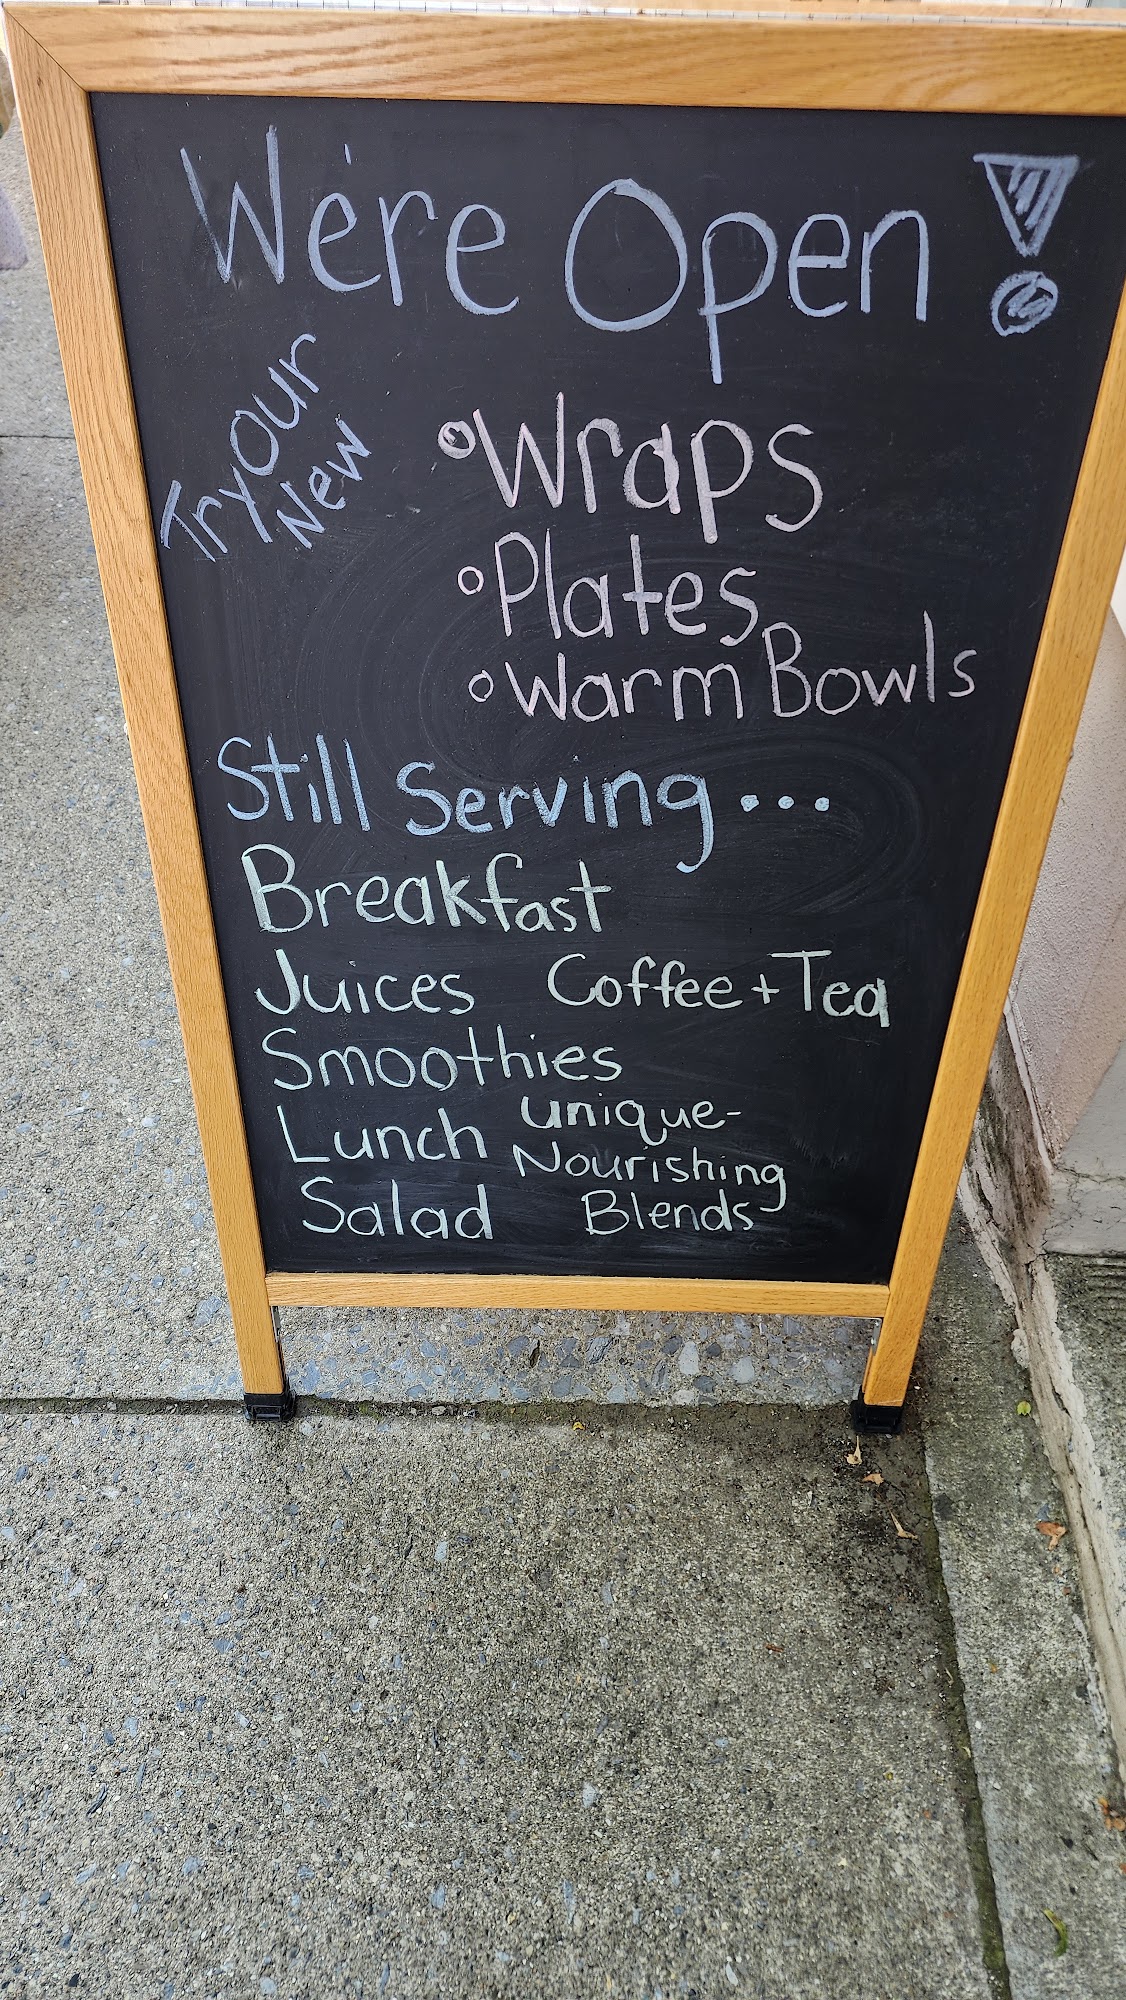 We're Open!
Try Our
New
Wraps
Plates
Warm Bowls
Still Serving...
Breakfast
Juices Coffee + Tea
Smoothies
Lunch unique-
Nourishing
Salad Blends